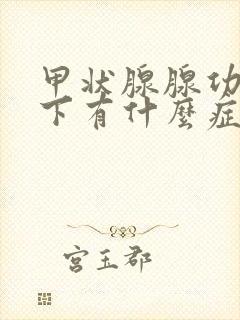 甲状腺腺功
下有什麼症
宫玉郡